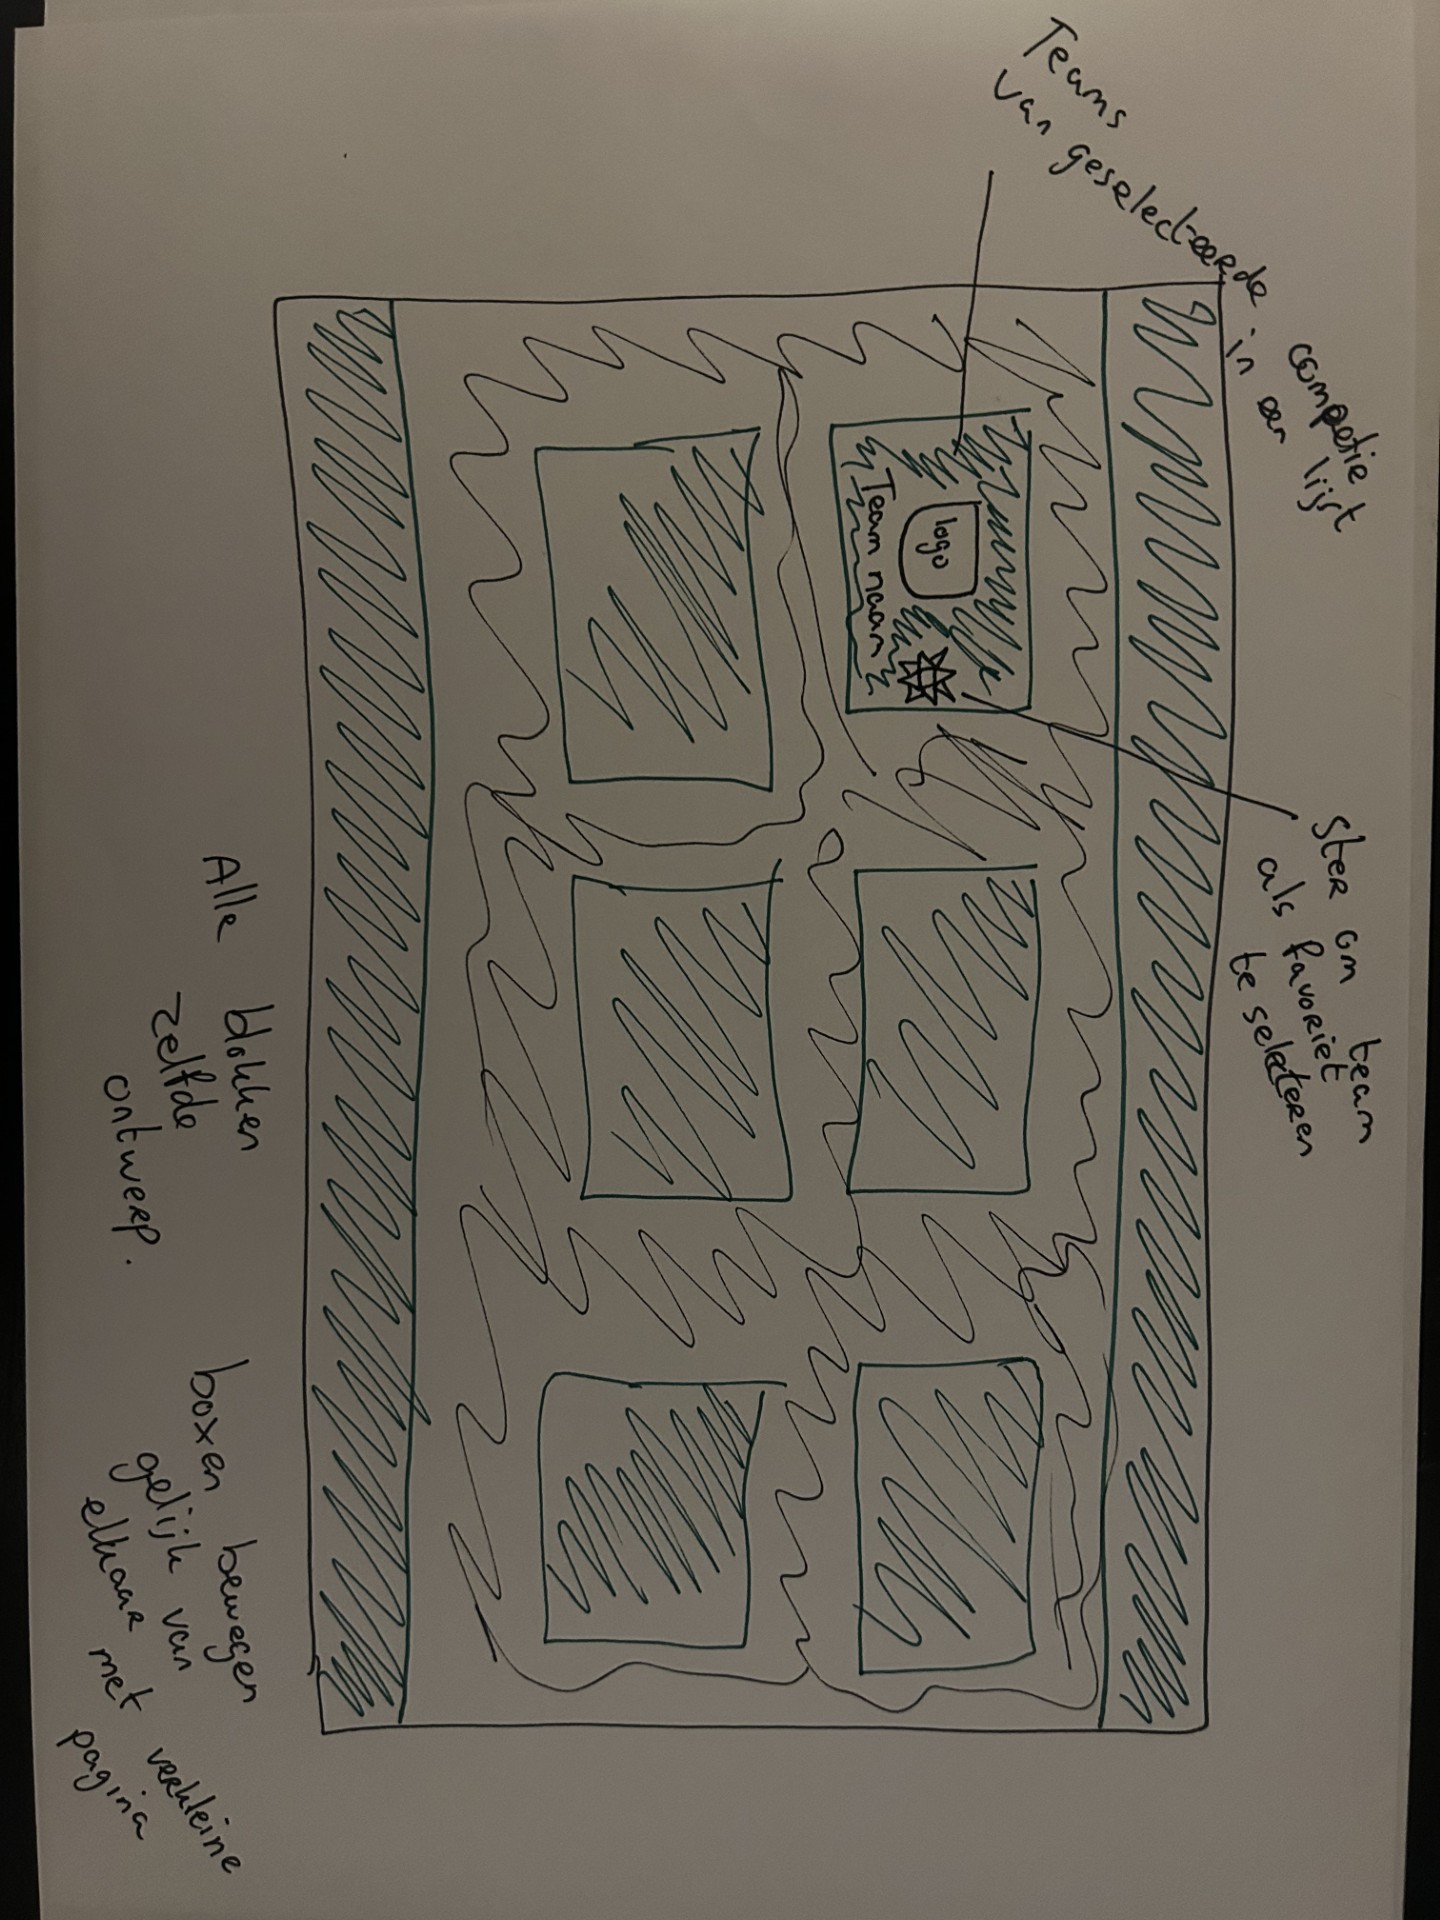 Teams
van geselecteerde competie
in een lijst
logo
Team naam
Ster om team
als favoriet
te selecteren
Alle blokken
zelfde
ontwerp.
boxen bewegen
gelijk van
elkaar met verkleine
pagina